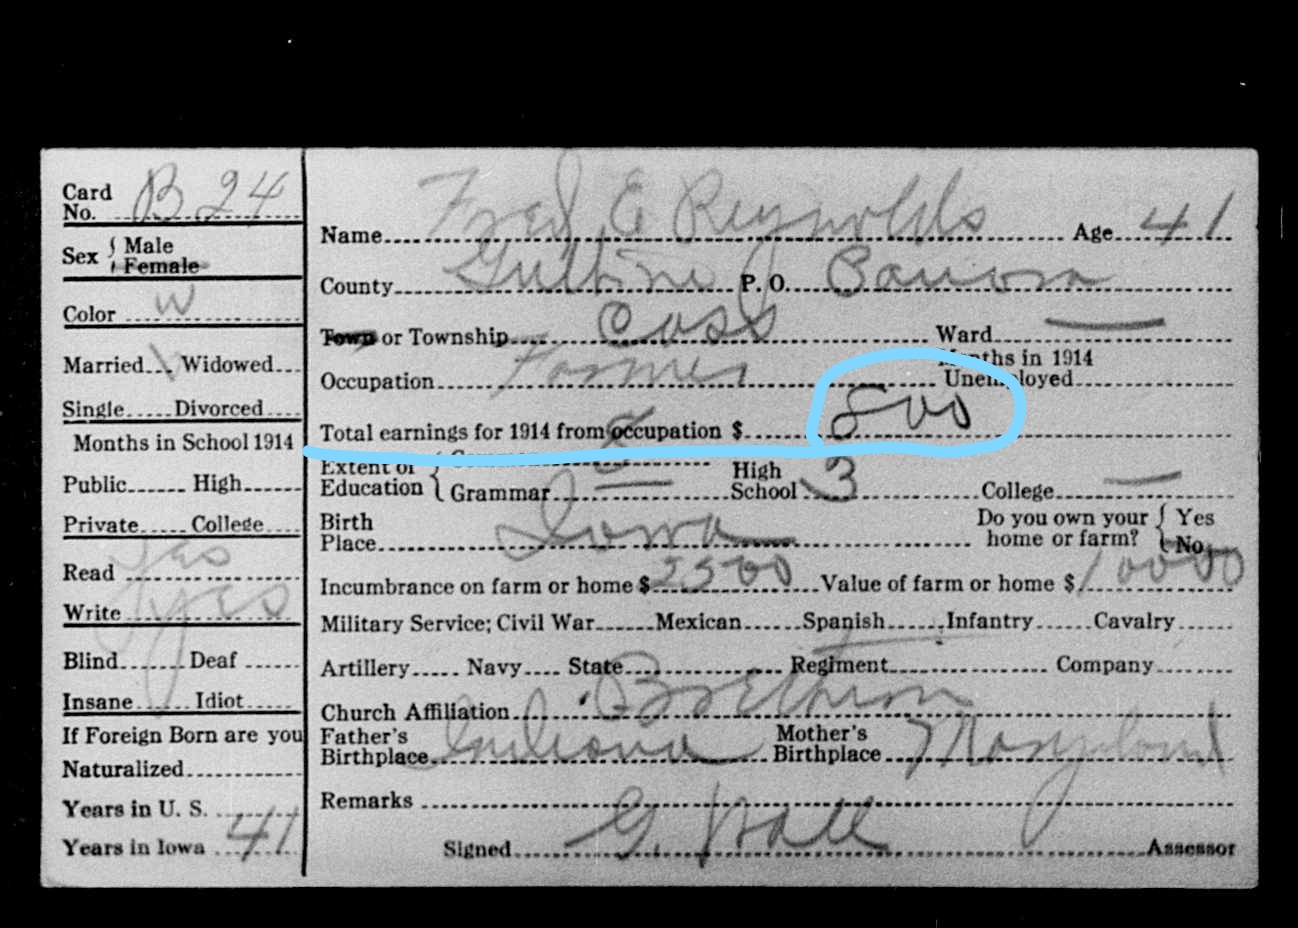 Card No. B 24
Sex Male Female
Color W
Married Widowed
Single Divorced
Months in School 1914
Public High
Private College
Read Yes
Write yes
Blind Deaf
Insane Idiot
If Foreign Born are you
Naturalized
Years in U. S.
Years in Iowa 41
Name Fred E Reynolds Age 41
County Guthrie P. O. 
Town or Township Cass Ward
Occupation Farmer Months in 1914 Unemployed
Total earnings for 1914 from occupation $ 800
Extent of Education Common 8 Grammar High School 3 College
Birth Place Iowa Do you own your home or farm? Yes No
Incumbrance on farm or home $ 2500 Value of farm or home $ 10000
Military Service; Civil War Mexican Spanish Infantry Cavalry
Artillery Navy State Regiment Company
Church Affiliation
Father's Birthplace Indiana Mother's Birthplace Maryland
Remarks
Signed G. Hall Assessor